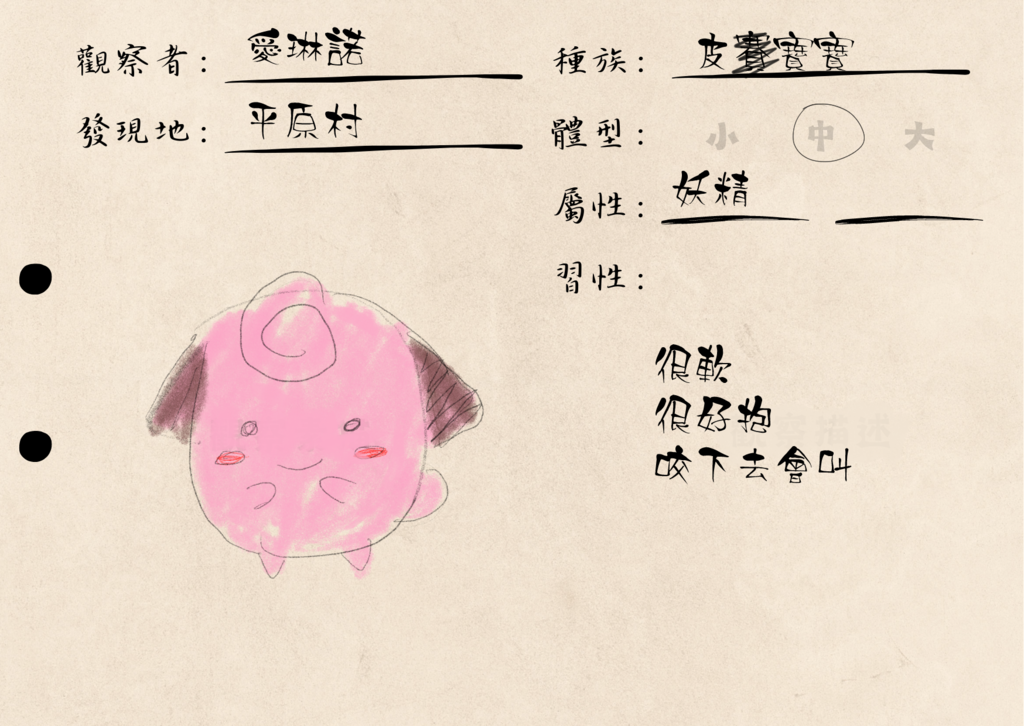 觀察者： 愛琳諾
發現地： 平原村
種族： 皮寶寶
體型： 小 中 大
屬性： 妖精
習性：
很軟
很好抱
咬下去會叫